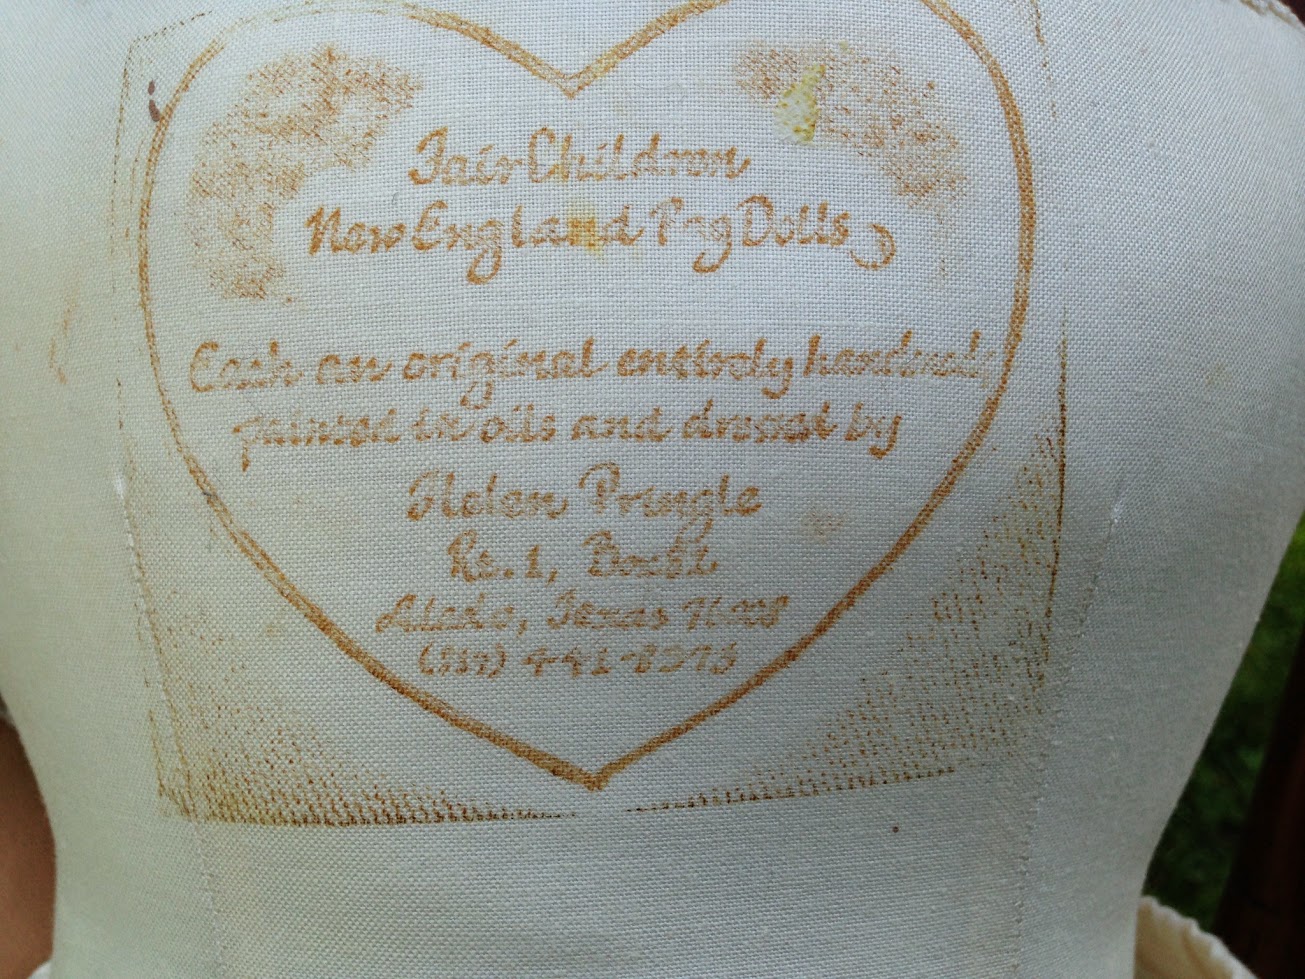 Fair Children
New England Rag Dolls
Each an original entirely handmade
painted in oils and dressed by
Helen Pringle
Rt. 1, Box
Aledo, Texas
441-8373